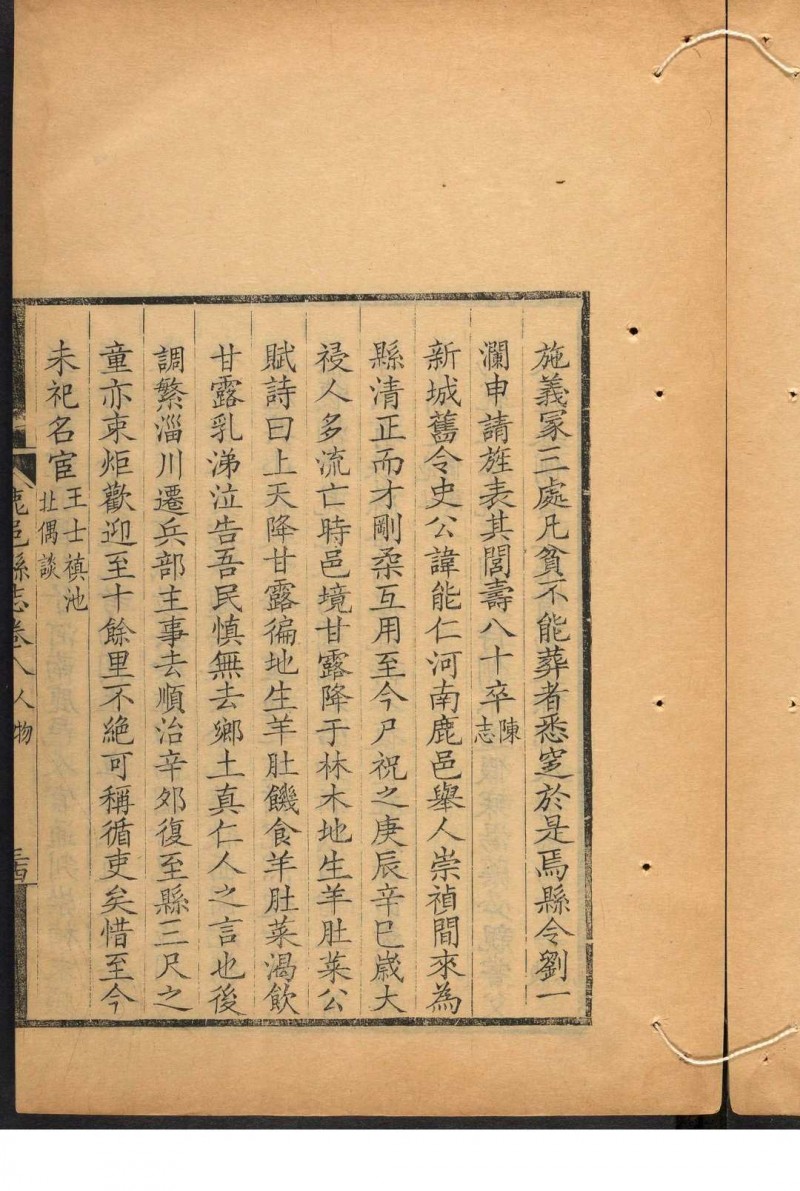 施義冢三處凡貧不能葬者悉窆於是焉縣令劉一
瀾申請旌表其閭壽八十卒陳志
新城舊令史公諱能仁河南鹿邑舉人崇禎間來為
縣清正而才剛柔互用至今尸祝之庚辰辛巳歲大
祲人多流亡時邑境甘露降于林木地生羊肚菜公
賦詩曰上天降甘露徧地生羊肚饑食羊肚菜渴飲
甘露乳涕泣告吾民慎無去鄉土真仁人之言也後
調繁淄川遷兵部主事去順治辛夘復至縣三尺之
童亦束炬歡迎至十餘里不絕可稱循吏矣惜至今
未祀名宦王士禛池
北偶談
鹿邑縣志卷八人物
三四